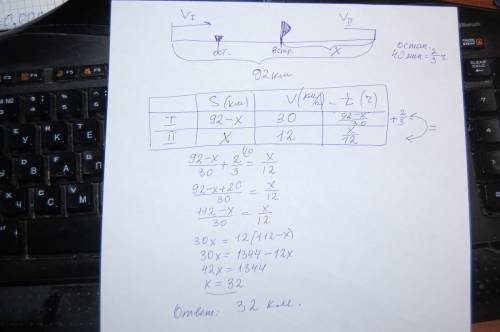 V I V II
ост. встр. x
остан.
40 мин = 2/3 ч
92 км
S (км) V (км/ч) t (ч)
I 92-x 30 (92-x)/30 + 2/3
II x 12 x/12 =
(92-x)/30 + 2/3 = x/12
(92-x+20)/30 = x/12
(112-x)/30 = x/12
30x = 12(112-x)
30x = 1344 - 12x
42x = 1344
x = 32
Ответ: 32 км.